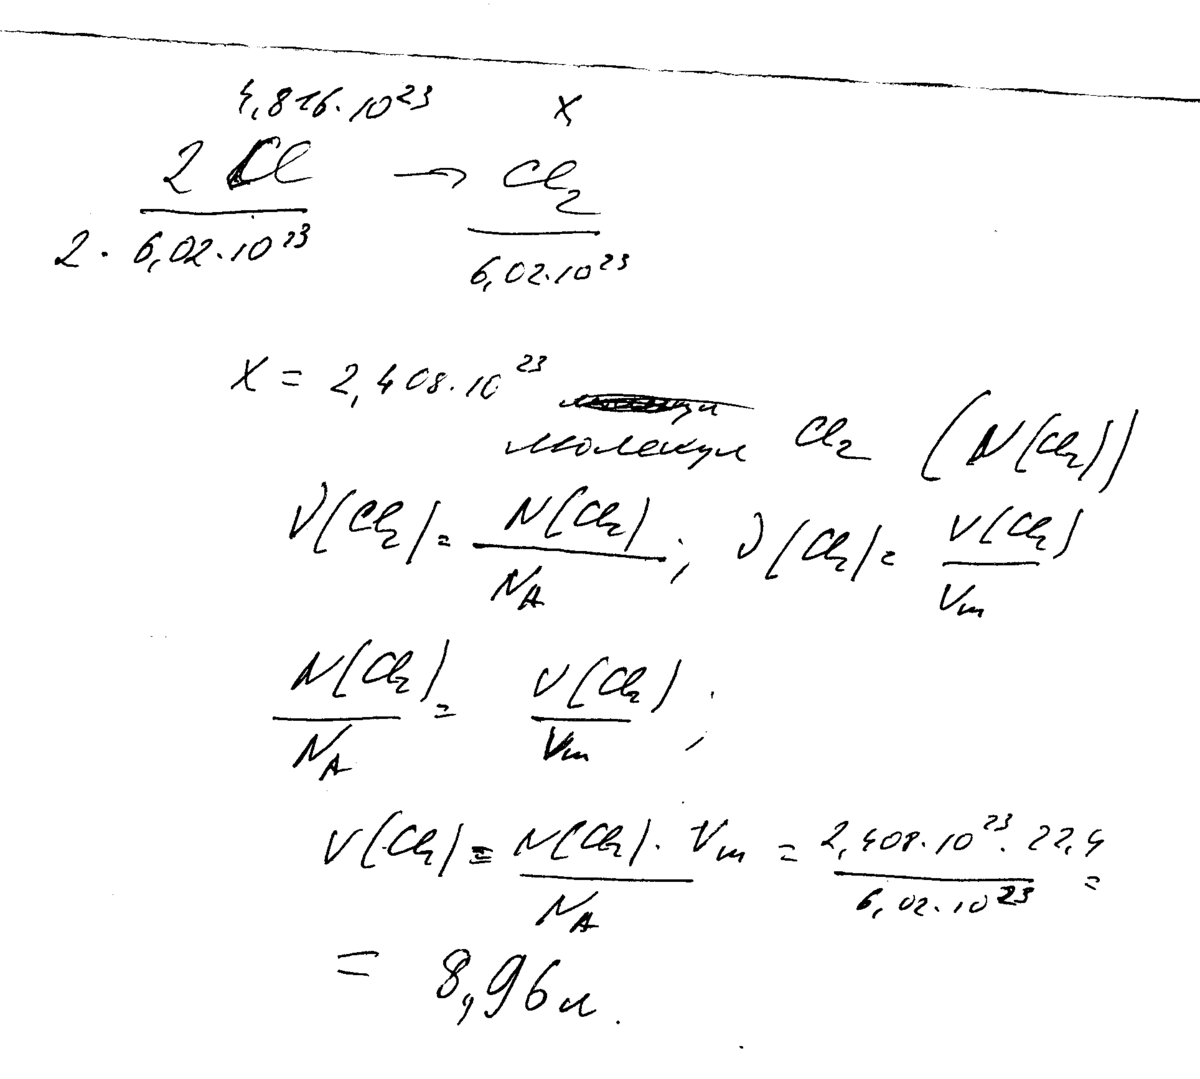 4,816·10²³ x
2 Cl → Cl₂
2 · 6,02·10²³ 6,02·10²³
x = 2,408·10²³
молекул Cl₂ (N(Cl₂))
ν(Cl₂) = N(Cl₂) / N_A ; ν(Cl₂) = V(Cl₂) / Vm
N(Cl₂) / N_A = V(Cl₂) / Vm ;
V(Cl₂) = N(Cl₂) · Vm / N_A = 2,408·10²³ · 22,4 / 6,02·10²³ =
= 8,96 л.